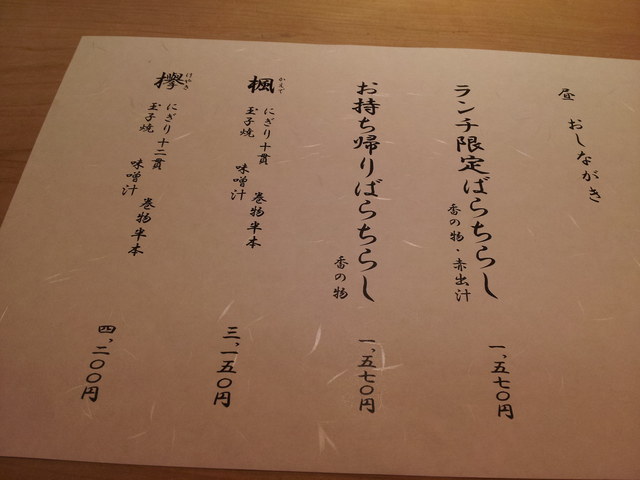 昼 おしながき
ランチ限定ばらちらし
香の物・赤出汁
一、五七〇円
お持ち帰りばらちらし
香の物
一、五七〇円
楓
かえで
にぎり十貫 巻物半本
玉子焼 味噌汁
三、一五〇円
欅
けやき
にぎり十二貫 巻物半本
玉子焼 味噌汁
四、二〇〇円